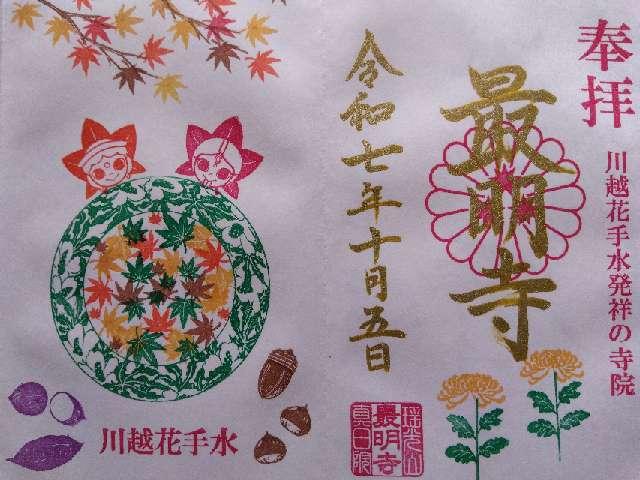 奉拝
川越花手水発祥の寺院
最明寺
令和七年十月五日
最明寺
川越花手水